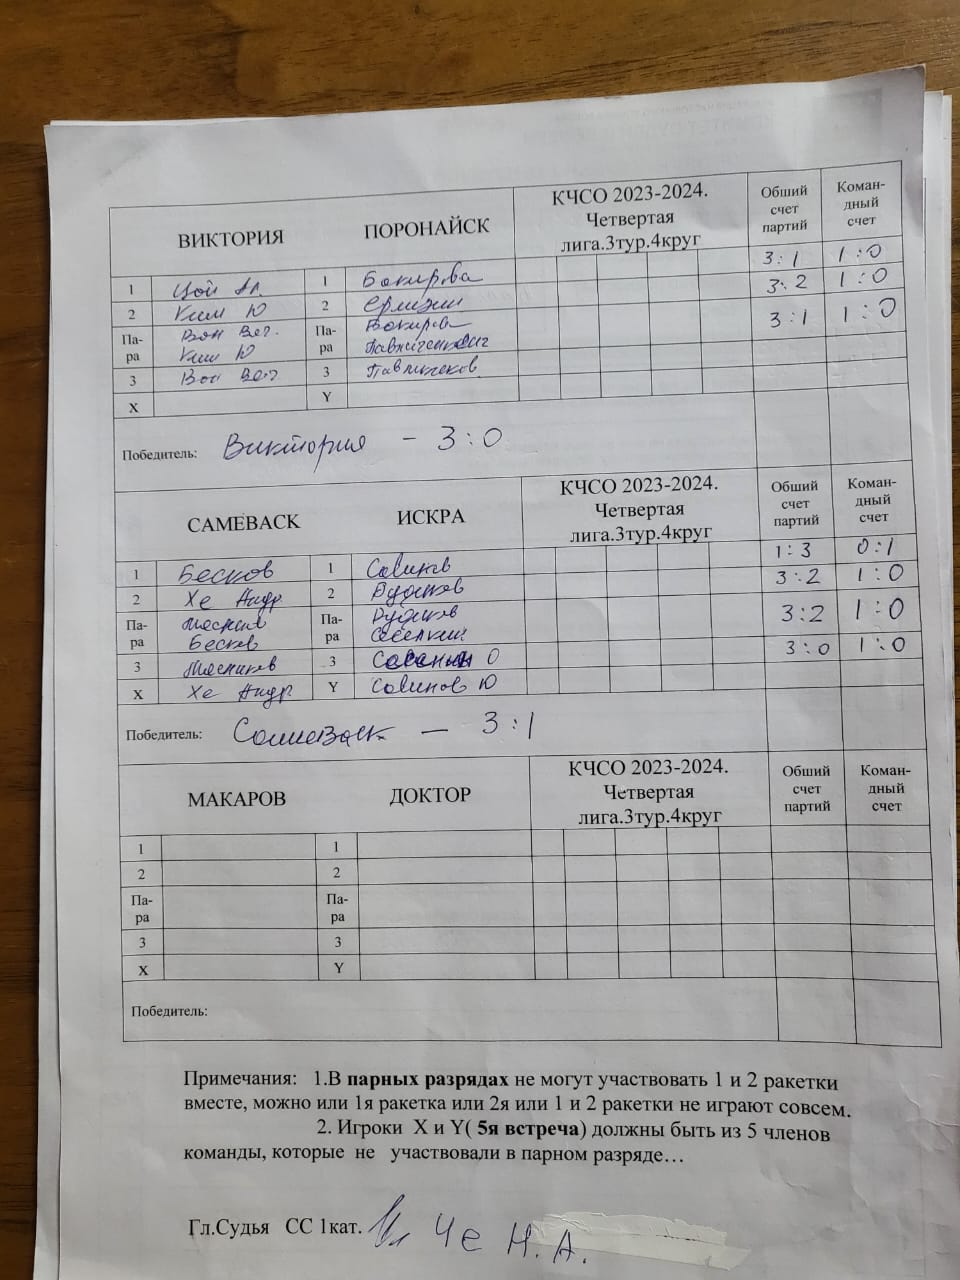 ВИКТОРИЯ ПОРОНАЙСК КЧСО 2023-2024. Четвертая лига.3тур.4круг Общий счет партий Коман-дный счет
1 Цой Ал. 1 Бокирова 3:1 1:0
2 Ким Ю 2 3:2 1:0
Па-ра Вон Вег. Па-ра Вокирова 3:1 1:0
Ким Ю
3 Вон Вег 3
X Y
Победитель: Виктория – 3:0
САМЕBACK ИСКРА КЧСО 2023-2024. Четвертая лига.3тур.4круг Общий счет партий Коман-дный счет
1 Бесков 1 Савинов 1:3 0:1
2 Хе Андр. 2 3:2 1:0
Па-ра Па-ра 3:2 1:0
Бесков
3 3 3:0 1:0
X Хе Андр Y Савинов Ю
Победитель: – 3:1
МАКАРОВ ДОКТОР КЧСО 2023-2024. Четвертая лига.3тур.4круг Общий счет партий Коман-дный счет
1 1
2 2
Па-ра Па-ра
3 3
X Y
Победитель:
Примечания: 1.В парных разрядах не могут участвовать 1 и 2 ракетки
вместе, можно или 1я ракетка или 2я или 1 и 2 ракетки не играют совсем.
2. Игроки X и Y( 5я встреча) должны быть из 5 членов
команды, которые не участвовали в парном разряде…
Гл.Судья СС 1кат. Че Н.А.